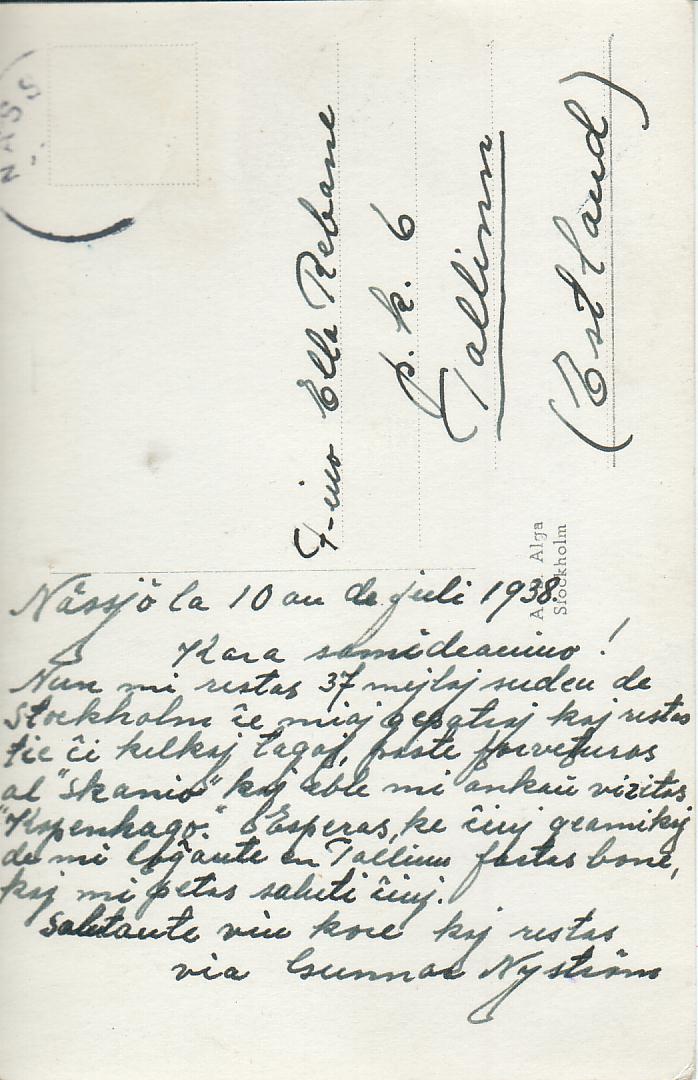 NÄSS
F-ino Ella Rebane
p.k. 6
Tallinn
(Estland)
Alga
Stockholm
Nässjö la 10 an de juli 1938.
Kara samideanino!
Nun mi restas 37 mejloj suden de
Stockholm ĉe miaj gepatroj kaj restas
tie ĉi kelkaj tagoj, poste forveturos
al "Skanio" kaj eble mi ankaŭ vizitas
"Kopenhago". Esperas, ke ĉiuj geamikoj
de mi loĝante en Tallinn fartas bone,
kaj mi petas saluti ĉiuj.
Salutante vin kore kaj restas
via Gunnar Nyström